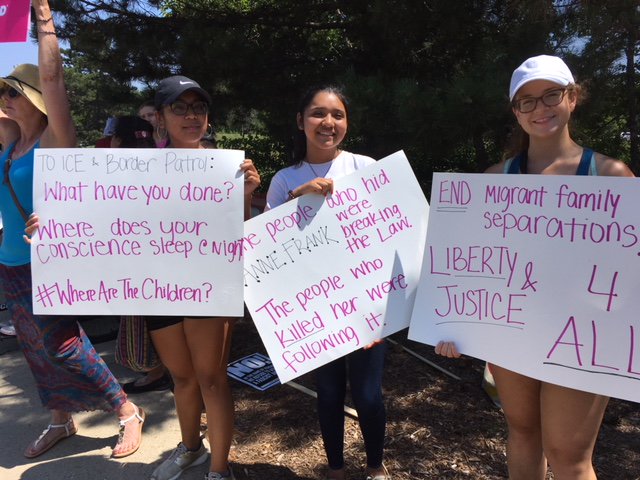 TO ICE & BORDER PATROL:
WHAT HAVE YOU DONE?
WHERE DOES YOUR
CONSCIENCE SLEEP @ Nigh
#WHERE ARE THE CHILDREN?
he people who hid
ANNE FRANK were
breaking
the Law.
The people who
killed her were
following it.
END MIGRANT family
separations
LIBERTY &
JUSTICE
4
ALL